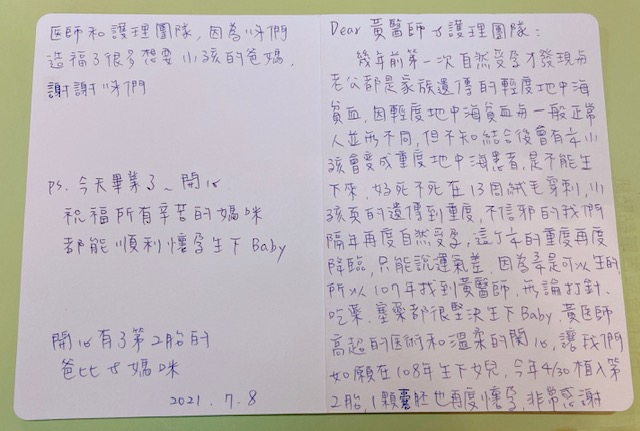 Dear 黃醫師 & 護理團隊:
幾年前第一次自然受孕才發現与
老公都是家族遺傳的輕度地中海
貧血, 因輕度地中海貧血与一般正常
人並無不同, 但不知結合後會有¼小
孩會變成重度地中海患者, 是不能生
下來, 好死不死在13周絨毛穿刺, 小
孩真的遺傳到重度, 不信邪的我們
隔年再度自然受孕, 這了¼的重度再度
降臨, 只能說運氣差, 因為¾是可以生的,
所以107年找到黃醫師, 無論打針、
吃藥、塞藥都很堅決生下Baby, 黃医師
高超的医術和溫柔的関心, 讓我們
如願在108年生下女兒, 今年4/30植入第
2胎, 1顆囊胚也再度懷孕, 非常感謝
医師和護理團隊, 因為妳們
造福了很多想要小孩的爸媽.
謝謝妳們
ps. 今天畢業了~開心
祝福所有辛苦的媽咪
都能順利懷孕生下Baby
開心有了第2胎的
爸比 & 媽咪
2021. 7. 8